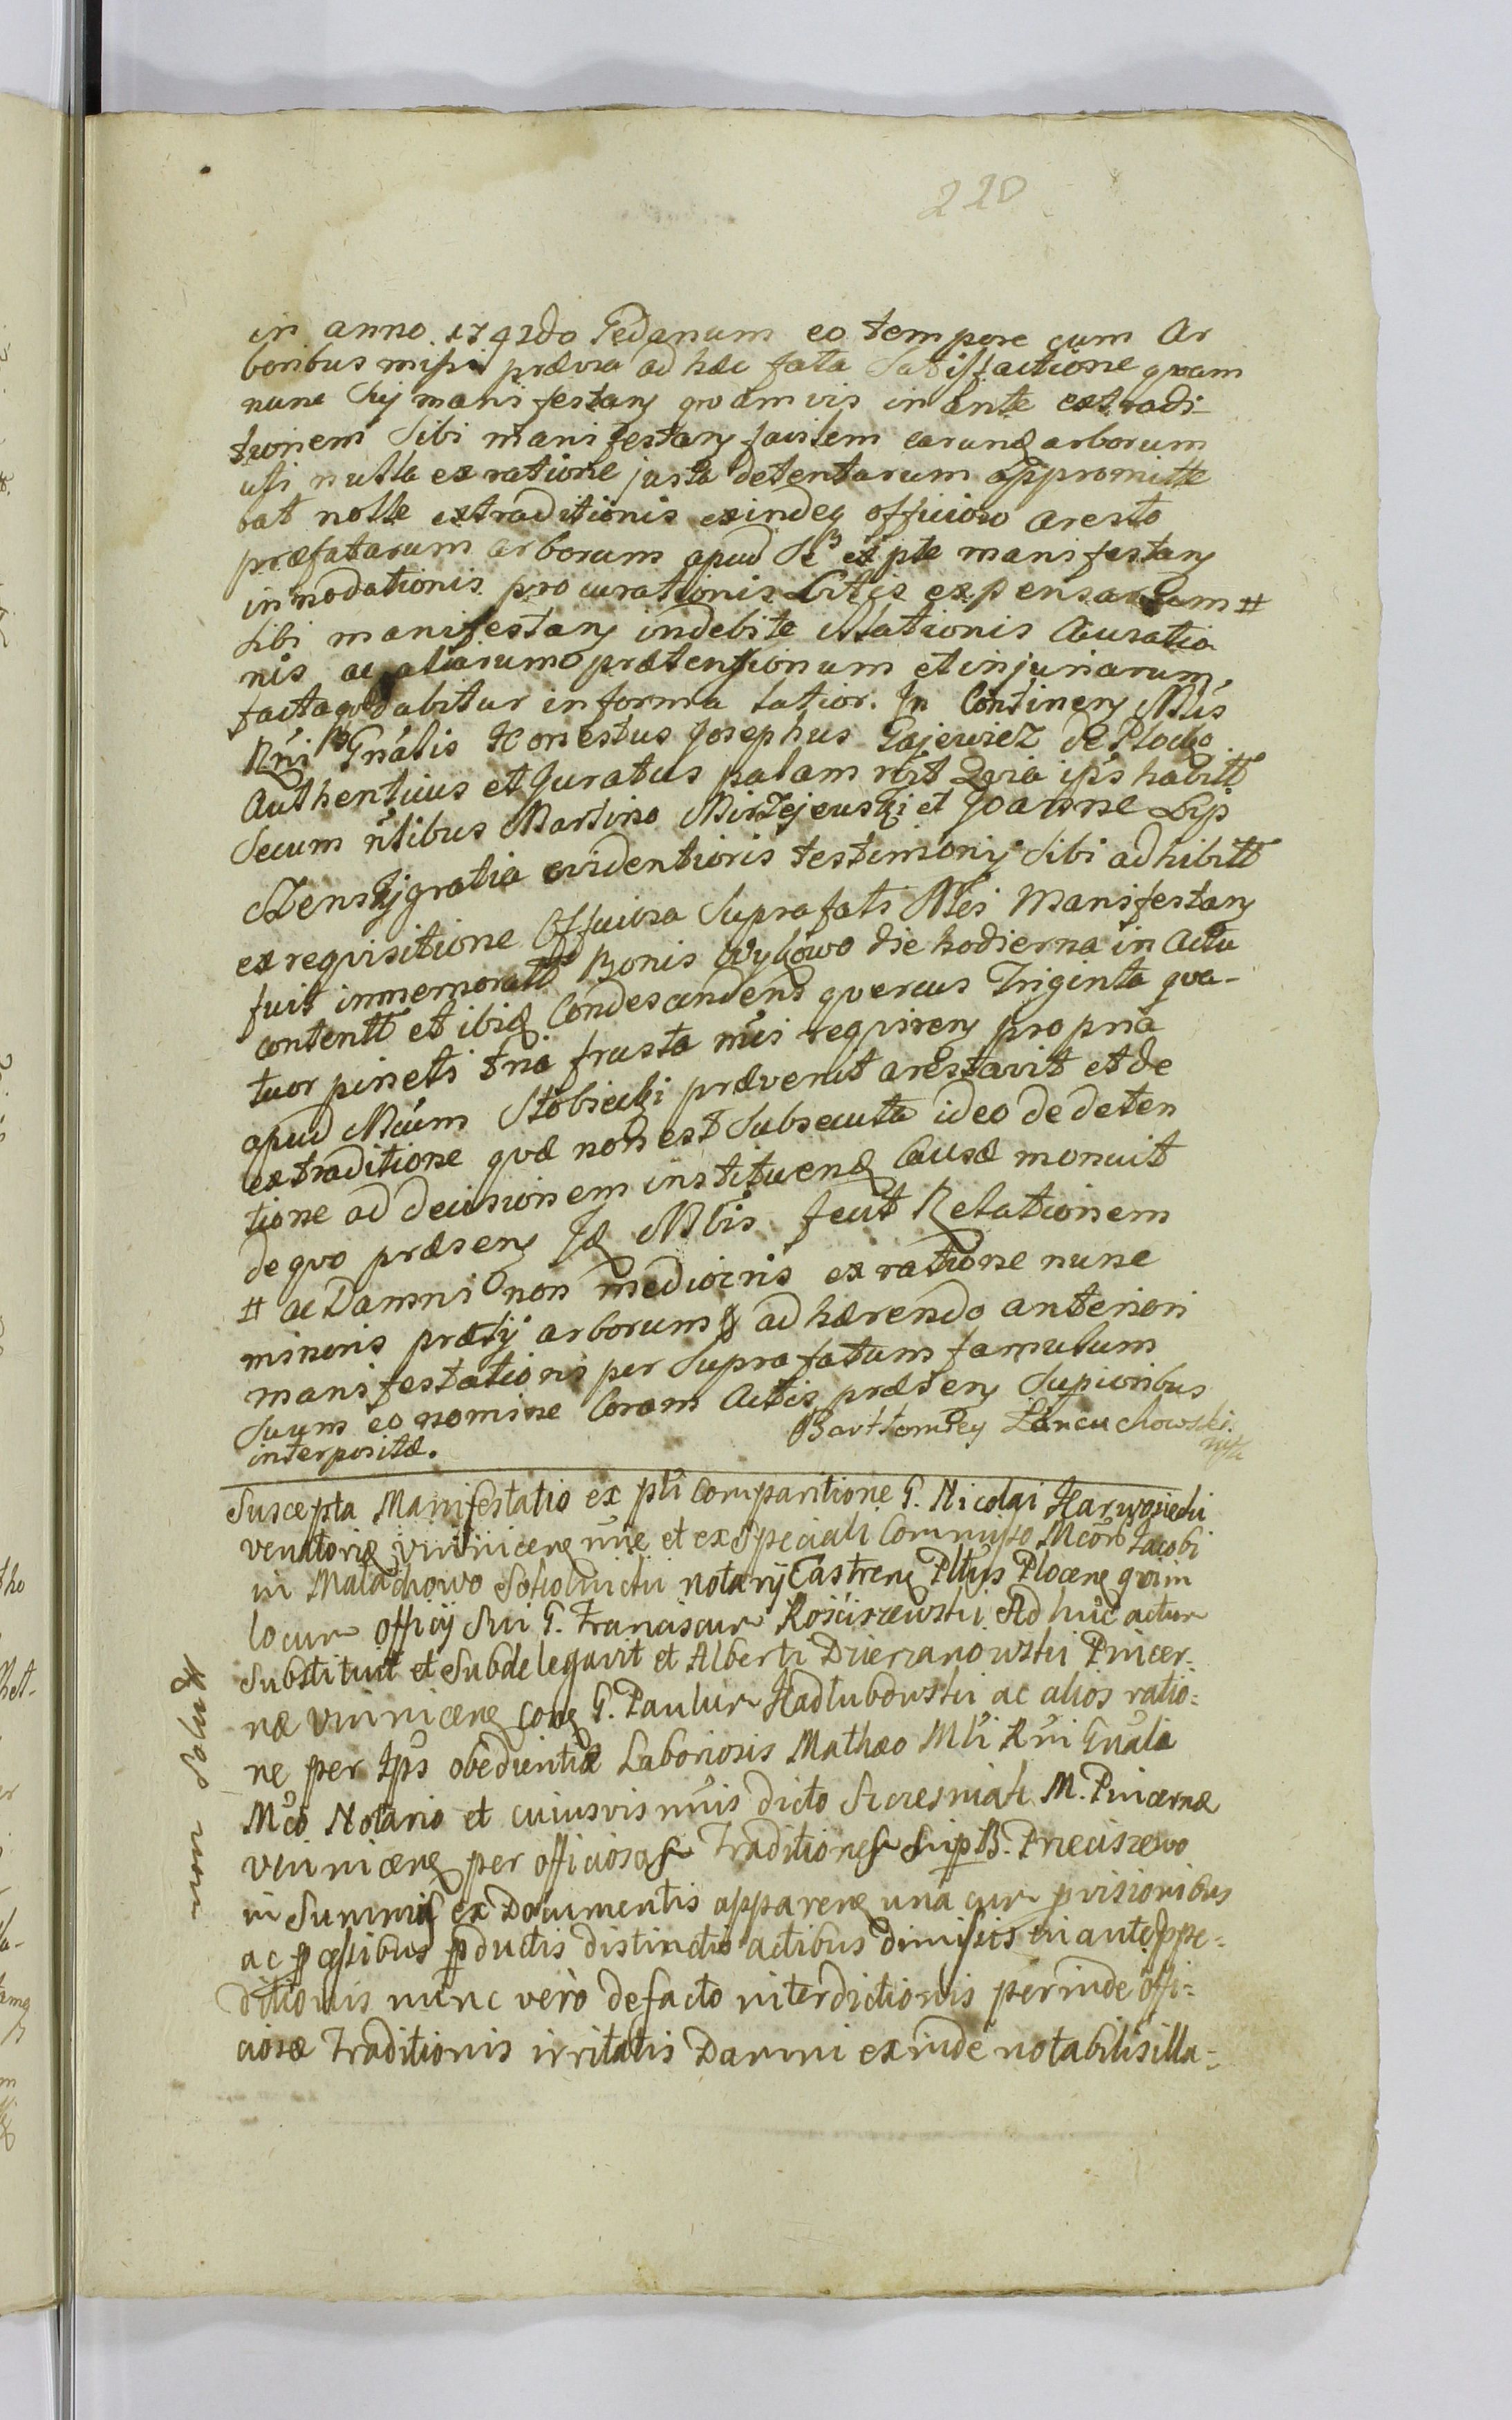 220
in anno 1742do Gedanum eo tempore cum Ar
boribus præviâ ad hæc fata Satisfactione quam
nunc manifestanỹ quamvis in ante extradi
tionem Sibi manifestanỹ earund arborum
uti nulla ex ratione justa detentarum appromitte
bat nolle extraditionis exindeq officioso aresto
præfatarum arborum apud Se ex pte manifestanỹ
innodationis procurationis Litis expensarum #
Sibi manifestanỹ indebite illationis Causatio
nis ac aliarum prætensionum et injuriarum
facta dabitur in forma latior. In Continenỹ Mlis
Rni Gnalis Honestus Josephus Gajewicz de Plocko
Authenticus et Juratus palam rcjt Quia ips habitt
Secum ntibus Martino Mirzejewski et Joanne Lip
czenskj gratia evidentioris testimonij Sibi adhibitt
ex requisitione Officiosa Suprafati Manifestanỹ
fuit in memoratt Bonis Wykowo die hodierna in Actu
contentt et ibiq Condescendens quercus Triginta qua-
tuor pineti frusta requirenỹ propria
apud Mcum Stobiecki prævenit arestavit et de
extraditione quæ non est Subsecuta ideo de deten
tione ad decisionem instituend Causæ monuit
de quo præsenỹ Jd Mlis fecit Relationem
# ac Damni non mediocris ex ratione nunc
minoris prætij arborum & adhærendo anteriori
manifestationi per Suprafatum famulum
Suum eo nomine Coram Actis præsenỹ Supioribus
interpositæ.
Barttomiey Łancuchowski
mp
Suscepta Manifestatio ex pti Comparitione G. Nicolai Harwosiecki
venatoris vinnicenẽ et ex Speciali Commisso Mcorũ Jacobi
in Malachowo Sokolnicki notarij Castrenẽ Pltus Plocenẽ qui in
locum officij Sui G. Franciscum Rosciszewski Ad hunc actum
Substituit et Subdelegavit et Alberti Dzierzanowski Pincer-
næ vinnicenẽ G. Paulum Hadlubowski ac alios ratio=
ne per Jps obedientiæ Laboriosis Mathæo Mli Rni Gnali
Mco Notario et cuiusvis dicto M. Pincernæ
vinnicenẽ per officiosas Traditiones Sup B. Prieciszewo
in Summis ex Documentis apparenẽ una cum pvisionibus
ac pcessibus pductis distinctis actibus dimissis in ante
ditionis nunc verò defacto interdictionis perinde offi=
ciosæ Traditionis irritatis Damni exinde notabilis illa=
non Solut